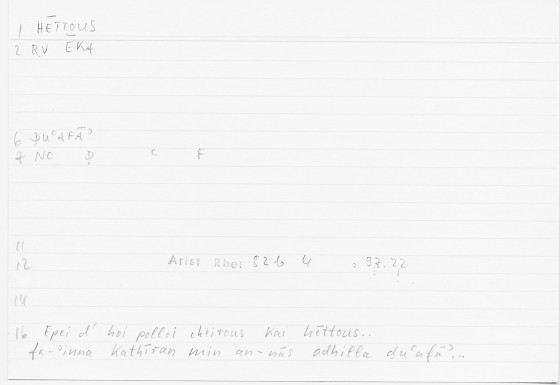 1 HĒTTOUS
2 RV ĒKA
6 ḌUʿAFĀʾ
7 NC Ḍ ʿ F
11
12 Arist Rhet 52b 4 : 97.22
14
16 Epei d' hoi polloi cheirous kai hēttous..
fa-ʾinna kathīran min an-nās adhilla duʿafāʾ...